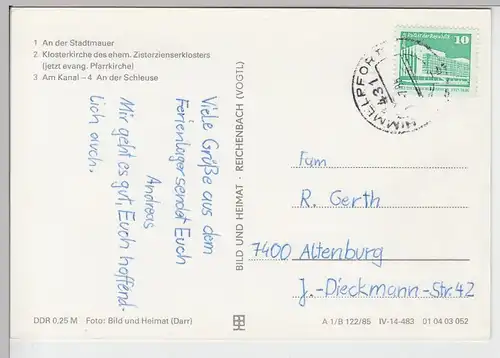 1 An der Stadtmauer
2. Klosterkirche des ehem. Zisterzienserklosters
(jetzt evang. Pfarrkirche)
3 Am Kanal – 4 An der Schleuse
Viele Grüße aus dem
Ferienlager sendet Euch
Andreas
Mir geht es gut, Euch hoffend-
lich auch.
BILD UND HEIMAT · REICHENBACH (VOGTL)
10
HIMMELPFORT
431
Fam
R. Gerth
7400 Altenburg
J.-Dieckmann-Str. 42
DDR 0,25 M Foto: Bild und Heimat (Darr)
A 1/B 122/85 IV-14-483 01 04 03 052